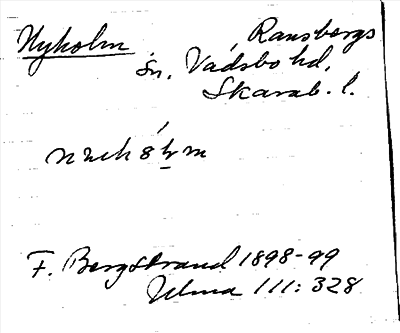 Nyholm Ransbergs
sn. Vadsbo hd.
Skarab. l.
F. Bergstrand 1898-99
Ulma 111: 328